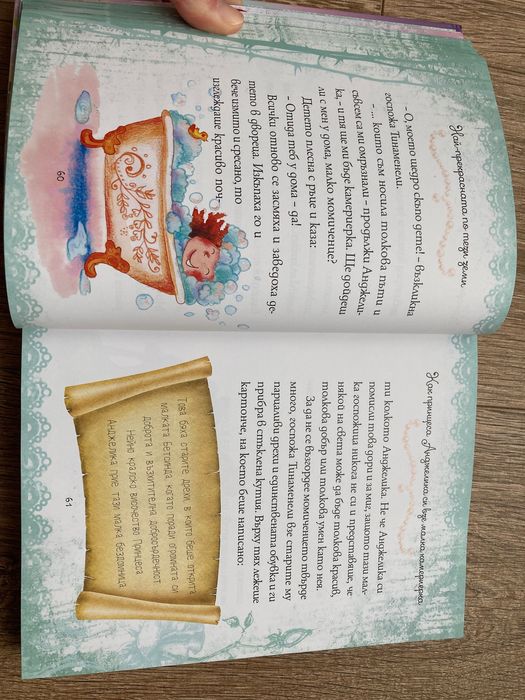 Най-прекрасната по тези земи
– О, моето щедро скъпо дете! – възкликна
госпожа Тинаменели.
– ... които съм носила толкова пъти и
съвсем са ми омръзнали – продължи Анджели-
ка, – и тя ще ми бъде камериерка. Ще дойдеш
ли с мен у дома, малко момиченце?
Детето плесна с ръце и каза:
– Отида теб у дома – да!
Всички отново се засмяха и заведоха де-
тето в двореца. Изкъпаха го и
вече измито и сресано, то
изглеждаше красиво поч-
60
Как принцеса Анджелика си взе малка камериерка
ти колкото Анджелика. Не че Анджелика си
помисли това дори и за миг, защото тази мал-
ка госпожица никога не си и представяше, че
някой на света може да бъде толкова красив,
толкова добър или толкова умен като нея.
За да не се възгордее момичението твърде
много, госпожа Тинаменели взе старите му
парцаливи дрехи и единствената обувка и ги
прибра в стъклена кутия. Върху тях лежеше
картонче, на което беше написано:
Това бяха старите дрехи, в които беше открита
малката Бетсинда, когато поради огромната си
доброта и възхитителна добросърдечност
Нейно кралско височество Принцеса
Анджелика прие тази малка бездомница
61